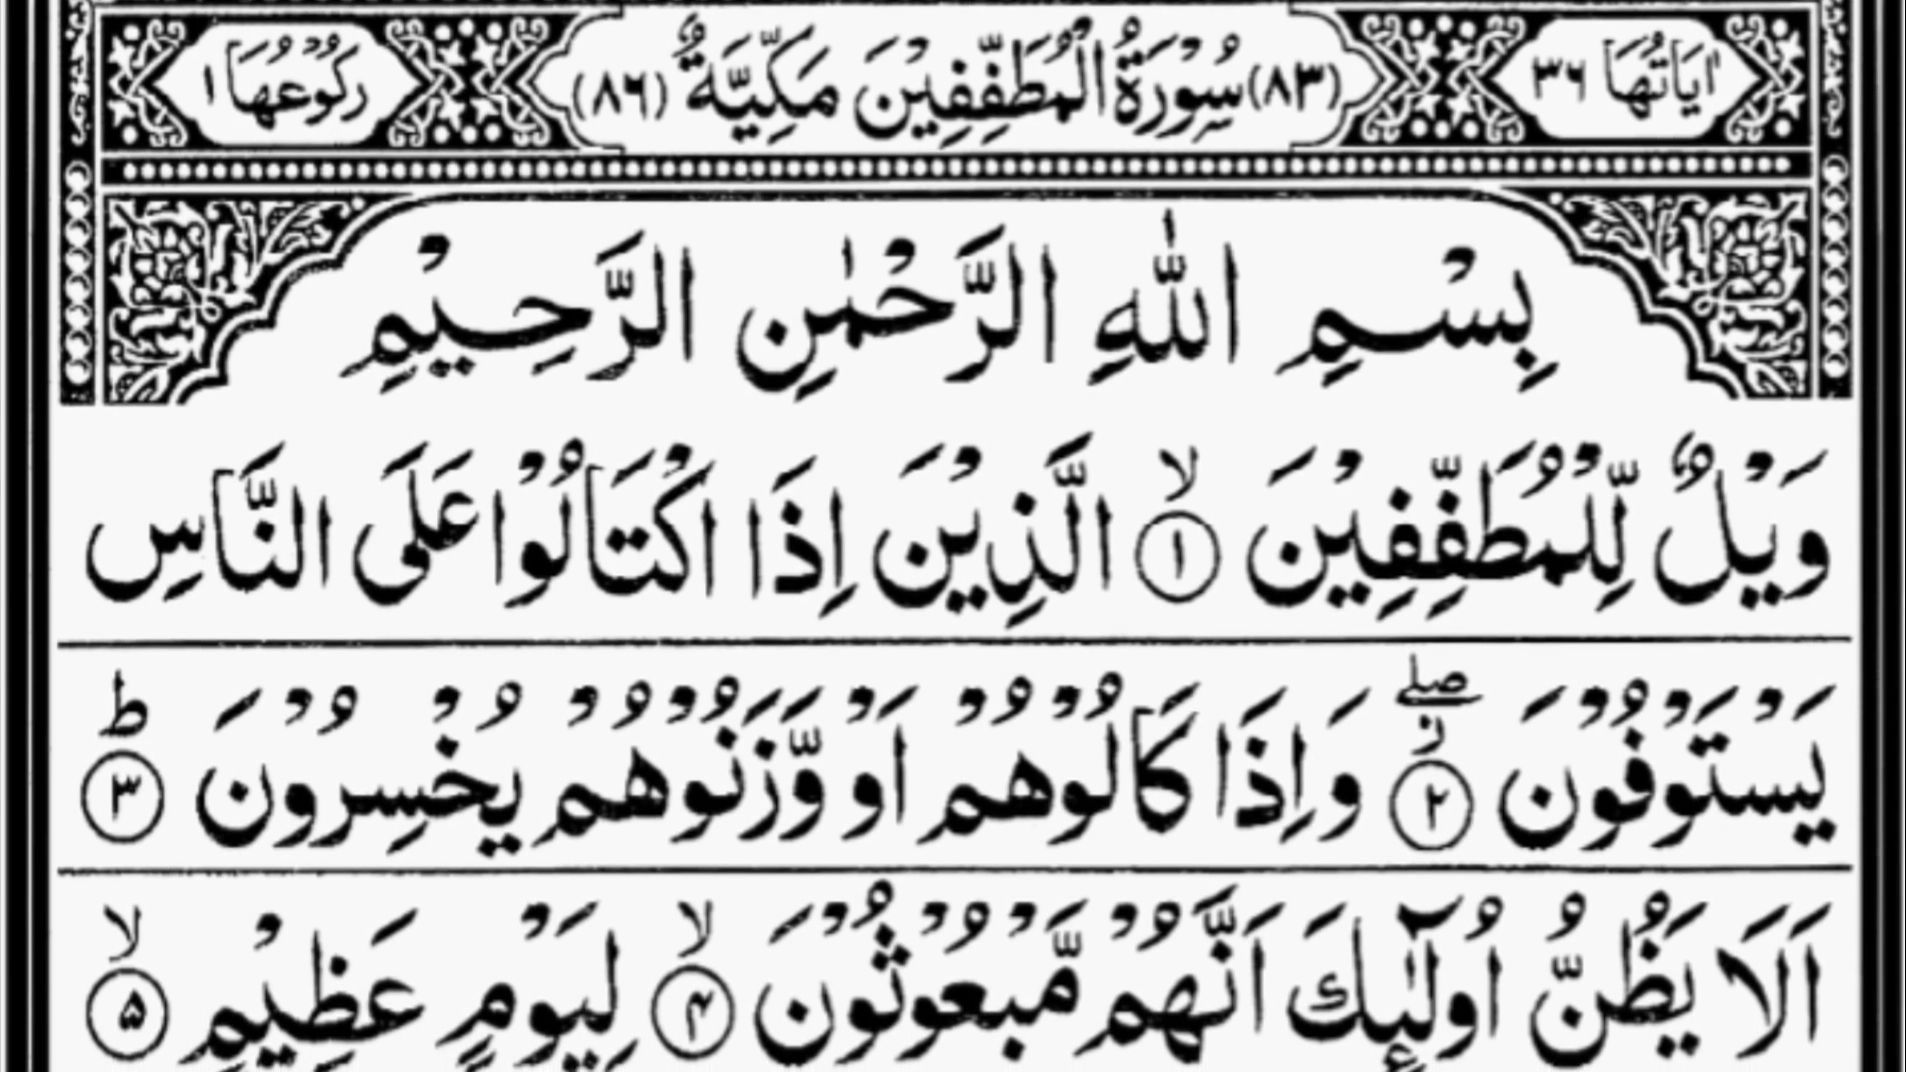 اٰيَاتُهَا ٣٦ (٨٣) سُوْرَةُ الْمُطَفِّفِيْنَ مَكِّيَّةٌ (٨٦) رُكُوْعُهَا ١
بِسْمِ اللّٰهِ الرَّحْمٰنِ الرَّحِيْمِ
وَيْلٌ لِّلْمُطَفِّفِيْنَ ۙ﴿١﴾ الَّذِيْنَ اِذَا اكْتَالُوْا عَلَى النَّاسِ
يَسْتَوْفُوْنَ ۖز ﴿٢﴾ وَاِذَا كَالُوْهُمْ اَوْ وَّزَنُوْهُمْ يُخْسِرُوْنَ ؕ﴿٣﴾
اَلَا يَظُنُّ اُولٰٓئِكَ اَنَّهُمْ مَّبْعُوْثُوْنَ ۙ﴿۴﴾ لِيَوْمٍ عَظِيْمٍ ۙ﴿۵﴾